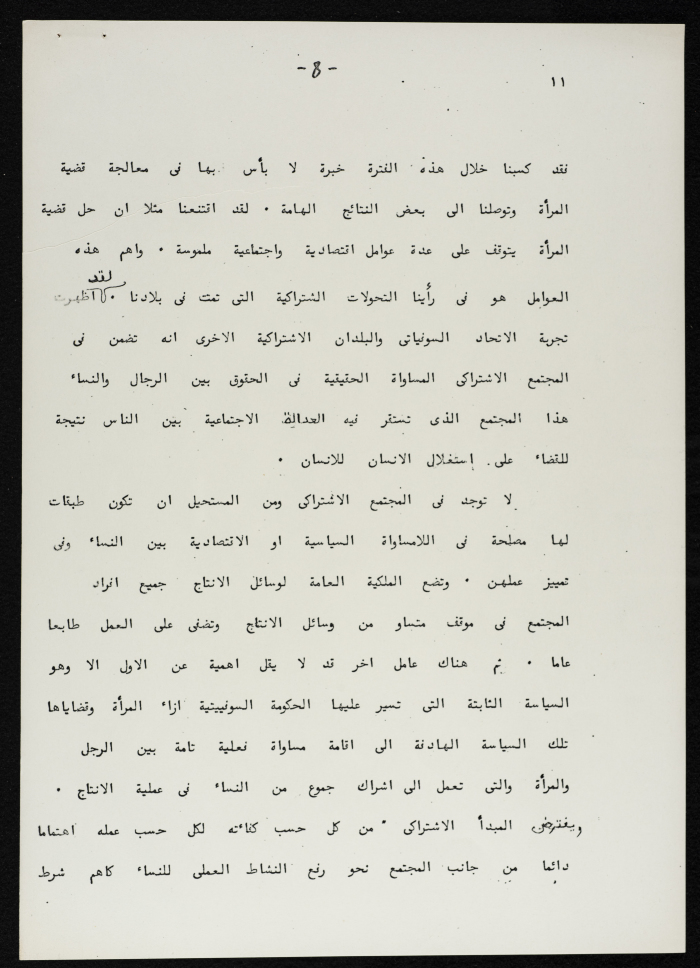 - 8 -
١١
فقد كسبنا خلال هذه الفترة خبرة لا بأس بها فى معالجة قضية
المرأة وتوصلنا الى بعض النتائج الهامة ٠ لقد اقتنعنا مثلا ان حل قضية
المرأة يتوقف على عدة عوامل اقتصادية واجتماعية ملموسة ٠ واهم هذه
العوامل هو فى رأينا التحولات الشتراكية التى تمت فى بلادنا ٠ لقد اظهرت
تجربة الاتحاد السوفياتى والبلدان الاشتراكية الاخرى انه تضمن فى
المجتمع الاشتراكى المساواة الحقيقية فى الحقوق بين الرجال والنساء
هذا المجتمع الذى تستقر فيه العدالة الاجتماعية بين الناس نتيجة
للقضاء على إستغلال الانسان للانسان ٠
لا توجد فى المجتمع الاشتراكى ومن المستحيل ان تكون طبقات
لها مصلحة فى اللامساواة السياسية او الاقتصادية بين النساء وفى
تمييز عملهن ٠ وتضع الملكية العامة لوسائل الانتاج جميع افراد
المجتمع فى موقف متساو من وسائل الانتاج وتضفى على العمل طابعا
عاما ٠ ثم هناك عامل اخر قد لا يقل اهمية عن الاول الا وهو
السياسة الثابتة التى تسير عليها الحكومة السوفييتية ازاء المرأة وقضاياها
تلك السياسة الهادفة الى اقامة مساواة فعلية تامة بين الرجل
والمرأة والتى تعمل الى اشراك جموع من النساء فى عملية الانتاج ٠
ويفترض المبدأ الاشتراكى " من كل حسب كفاءته لكل حسب عمله اهتماما
دائما من جانب المجتمع نحو رفع النشاط العملى للنساء كاهم شرط